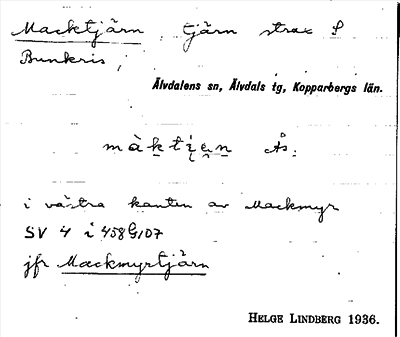 Macktjärn, tjärn strax S
Bunkris,
Älvdalens sn, Älvdals tg, Kopparbergs län.
màktjęn Ås.
i västra kanten av Mackmyr
SV 4 i 458 G107
jfr Mackmyrtjärn
HELGE LINDBERG 1936.